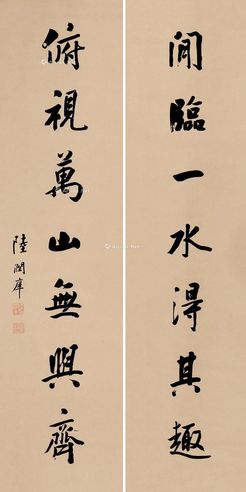 閒臨一水得其趣
俯視萬山無與齊
陸潤庠